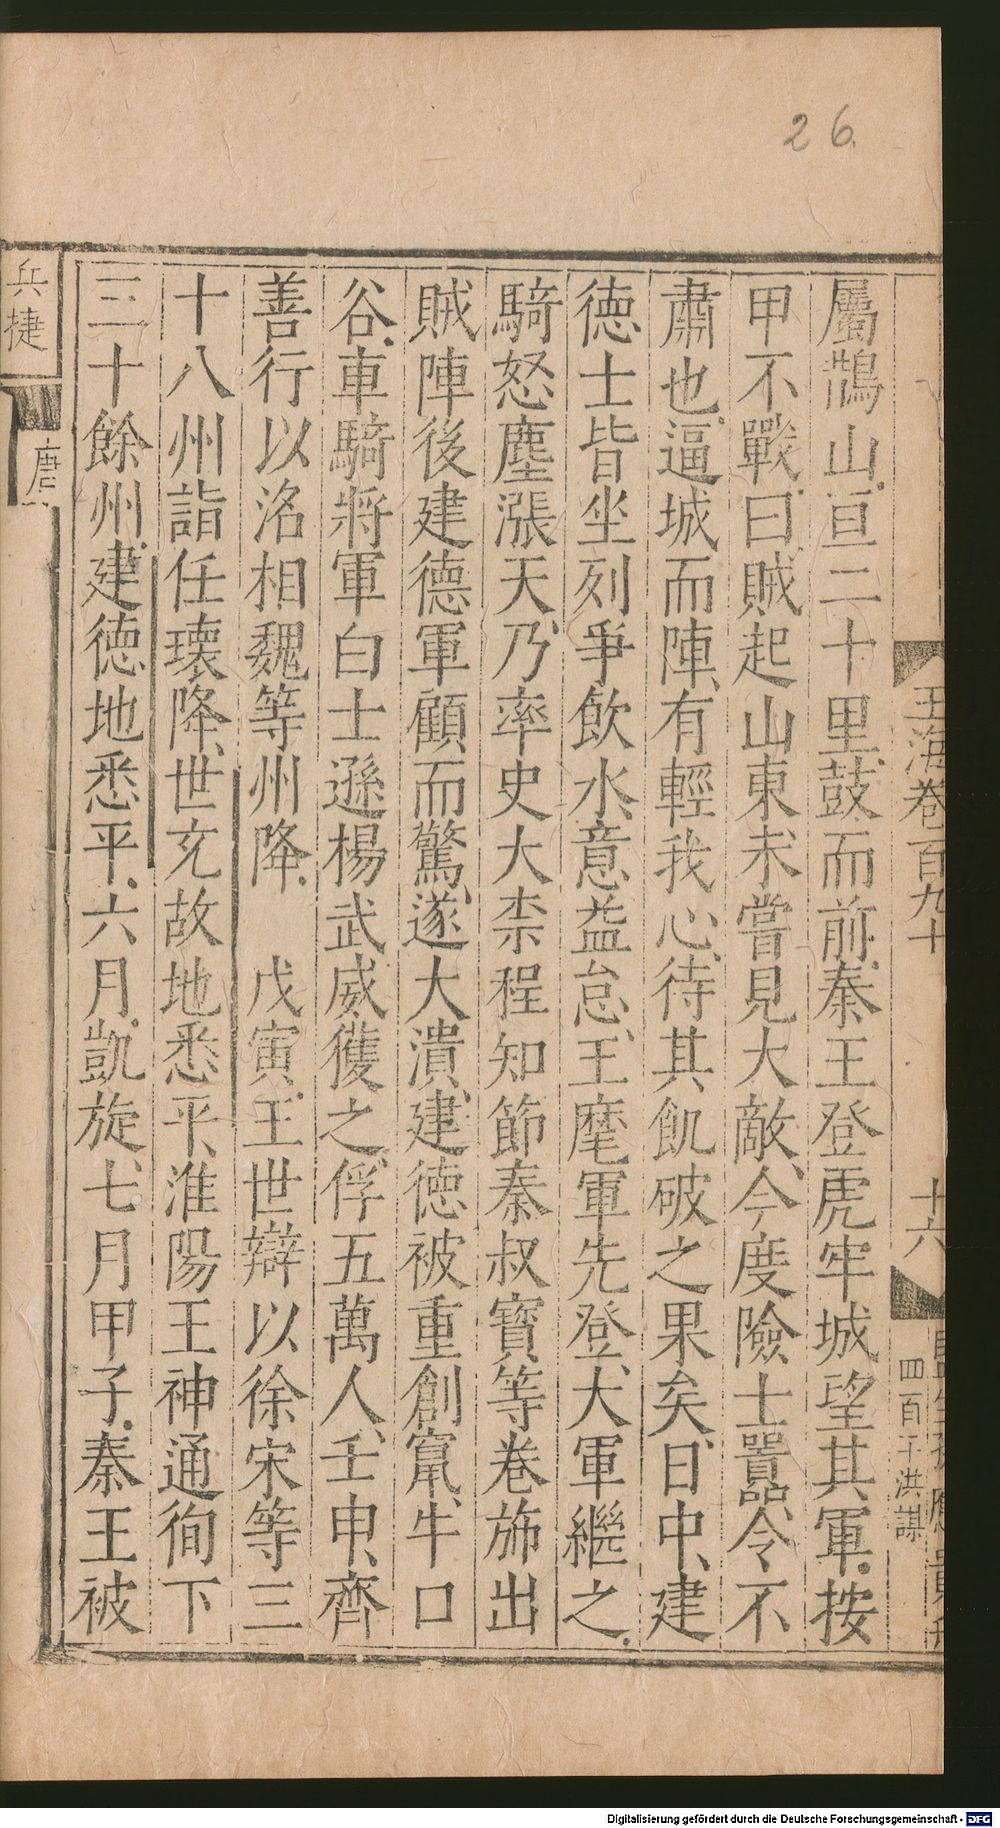 26.
玉海卷百九十
十六
四百 于洪謀
屬鵲山亘二十里鼓而前秦王登虎牢城望其軍按
甲不戰曰賊起山東未嘗見大敵今度險士囂令不
肅也逼城而陣有輕我心待其飢破之果矣日中建
德士皆坐列爭飲水意益怠王麾軍先登大軍繼之
騎怒塵漲天乃率史大柰程知節秦叔寶等卷斾出
賊陣後建德軍顧而驚遂大潰建德被重創竄牛口
谷車騎將軍白士遜楊武威獲之俘五萬人壬申齊
善行以洺相魏等州降 戊寅王世辯以徐宋等三
十八州詣任瓌降世充故地悉平淮陽王神通徇下
三十餘州建德地悉平六月凱旋七月甲子秦王被
兵捷
唐
Digitalisierung gefördert durch die Deutsche Forschungsgemeinschaft - DFG